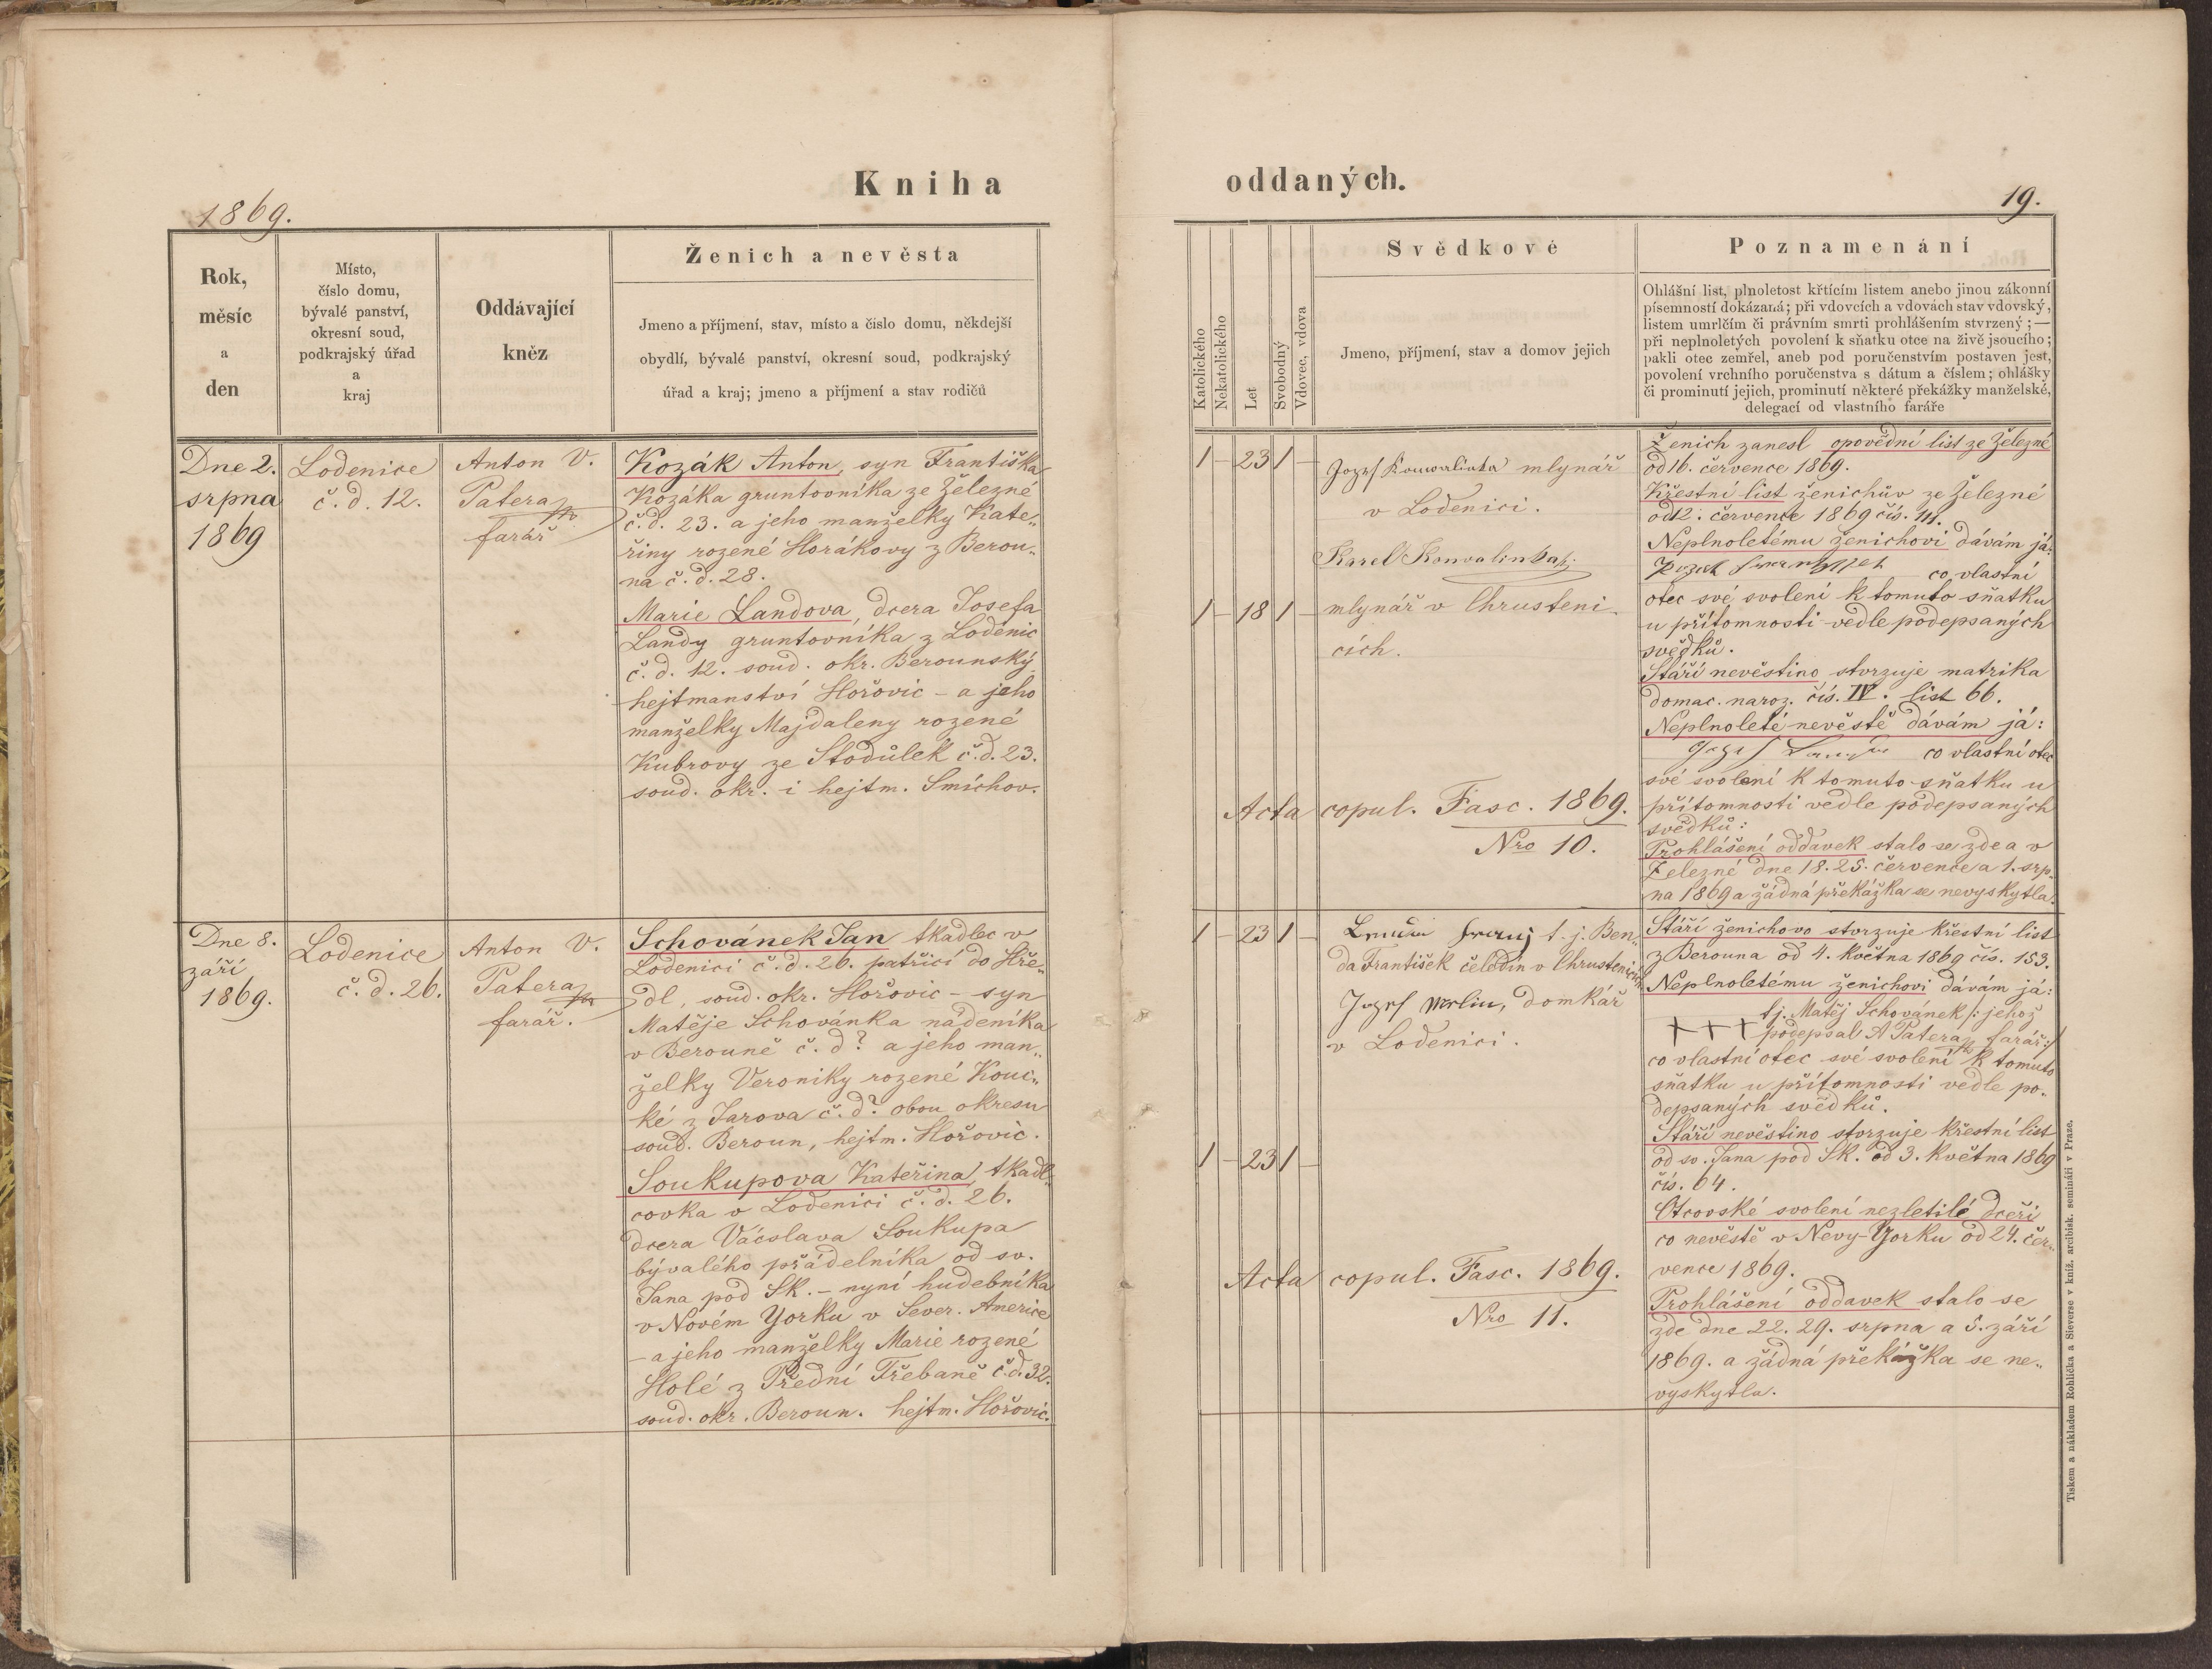 Kniha
1869.
Rok,
měsíc
a
den
Místo,
číslo domu,
bývalé panství,
okresní soud,
podkrajský úřad
a
kraj
Oddávající
kněz
Ženich a nevěsta
Jmeno a příjmení, stav, místo a čislo domu, někdejší
obydlí, bývalé panství, okresní soud, podkrajský
úřad a kraj; jmeno a příjmení a stav rodičů
Dne 2.
srpna
1869
Lodenice
č. d. 12.
Anton V.
Patera
farář
Kozák Anton, syn Františka
Kozáka gruntovníka ze Železné
č. d. 23. a jeho manželky Kate„
řiny rozené Horákovy z Berou„
na č. d. 28.
Marie Landova, dcera Josefa
Landy gruntovníka z Lodenic
č. d. 12. soud. okr. Berounský
hejtmanství Hořovic – a jeho
manželky Majdaleny rozené
Kubrovy ze Stodůlek č. d. 23.
soud. okr. i hejtm. Smíchov.
Dne 8.
září
1869.
Lodenice
č. d. 26.
Anton V.
Patera
farář.
Schovánek Jan tkadlec v
Lodenici č. d. 26. patřící do Hře„
dl, soud. okr. Hořovic – syn
Matěje Schovánka nádeníka
v Berouně č. d? a jeho man„
želky Veroniky rozené Kouc„
ké z Jarova č. d? obou okresu
soud. Beroun, hejtm. Hořovic.
Soukupova Kateřina, tkadl„
covka v Lodenici č. d. 26.
dcera Václava Soukupa
bývalého přádelníka od sv.
Jana pod Sk. – nyní hudebníka
v Novém Yorku v Sever. Americe
– a jeho manželky Marie rozené
Holé z Přední Třebaně č. d. 32.
soud. okr. Beroun. hejtm. Hořovic.
oddaných.
19.
Katolického
Nekatolického
Let
Svobodný
Vdovec, vdova
Svědkové
Jmeno, příjmení, stav a domov jejich
Poznamenání
Ohlášní list, plnoletost křtícím listem anebo jinou zákonní
písemností dokázaná; při vdovcích a vdovách stav vdovský,
listem umrlčím či právním smrti prohlášením stvrzený; —
při neplnoletých povolení k sňatku otce na živě jsoucího;
pakli otec zemřel, aneb pod poručenstvím postaven jest,
povolení vrchního poručenstva s dátum a číslem; ohlášky
či prominutí jejich, prominutí některé překážky manželské,
delegací od vlastního faráře
1 – 23 1 –
Jozef Konvalinka mlynář
v Lodenici.
Karel Konvalinka
1 – 18 1 –
mlynář v Chrusteni„
cích.
Acta copul. Fasc. 1869.
Nro 10.
Ženich zanesl opovědní list ze Železné
od 16. července 1869.
Křestní list ženichův ze Železné
od 12. července 1869 čís. 111.
Neplnoletému ženichovi dávám já:
co vlastní
otec své svolení k tomuto sňatku
u přítomnosti vedle podepsaných
svědků.
Stáří nevěstino stvrzuje matrika
domac. naroz. čís. IV. list 66.
Neplnoleté nevěstě dávám já:
co vlastní otec
své svolení k tomuto sňatku u
přítomnosti vedle podepsaných
svědků:
Prohlášení oddavek stalo se zde a v
Železné dne 18. 25. července a 1. srp„
na 1869 a žádná překážka se nevyskytla.
1 – 23 1 –
t. j. Ben„
da František čeledín v Chrustenicích
Jozef Merlin, domkář
v Lodenici.
1 – 23 1 –
Acta copul. Fasc. 1869.
Nro 11.
Stáří ženichovo stvrzuje křestní list
z Berouna od 4. května 1869 čís. 153.
Neplnoletému ženichovi dávám já:
tj. Matěj Schovánek /: jehož
+++ podepsal A Patera farář :/
co vlastní otec své svolení k tomuto
sňatku u přítomnosti vedle po„
depsaných svědků.
Stáří nevěstino stvrzuje křestní list
od sv. Jana pod Sk. od 3. května 1869
čís. 64.
Otcovské svolení nezletilé dceři
co nevěstě v Nevy-Yorku od 24. čer„
vence 1869.
Prohlášení oddavek stalo se
zde dne 22. 29. srpna a 5. září
1869. a žádná překážka se ne„
vyskytla.
Tiskem a nákladem Rohlíčka a Sieverse v kníž. arcibisk. semináři v Praze.